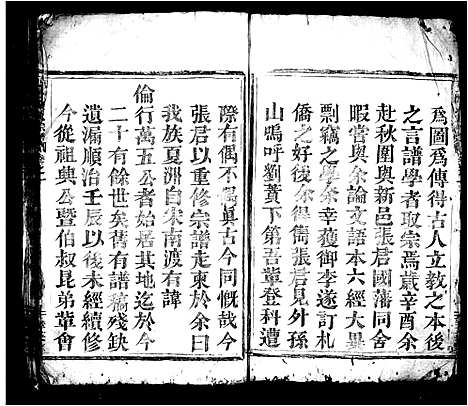 爲圖爲傳得古人立教之本後
之言譜學者取宗焉歲辛酉余
赴秋圍與新邑張君國藩同舍
暇嘗與余論文語本六經大異
剽竊之學余幸獲御李遂訂札
僑之好後余得雋張君見外孫
山嗚呼劉蕡下第吾輩登科遭
際有偶不偶眞古今同慨哉今
張君以重修宗譜走柬於余曰
我族夏洲自宋南渡有諱
倫行萬五公者始居其地迄於今
二十有餘世矣舊有譜稿殘缺
遺漏順治壬辰以後未經續修
今從祖興公暨伯叔昆弟輩會